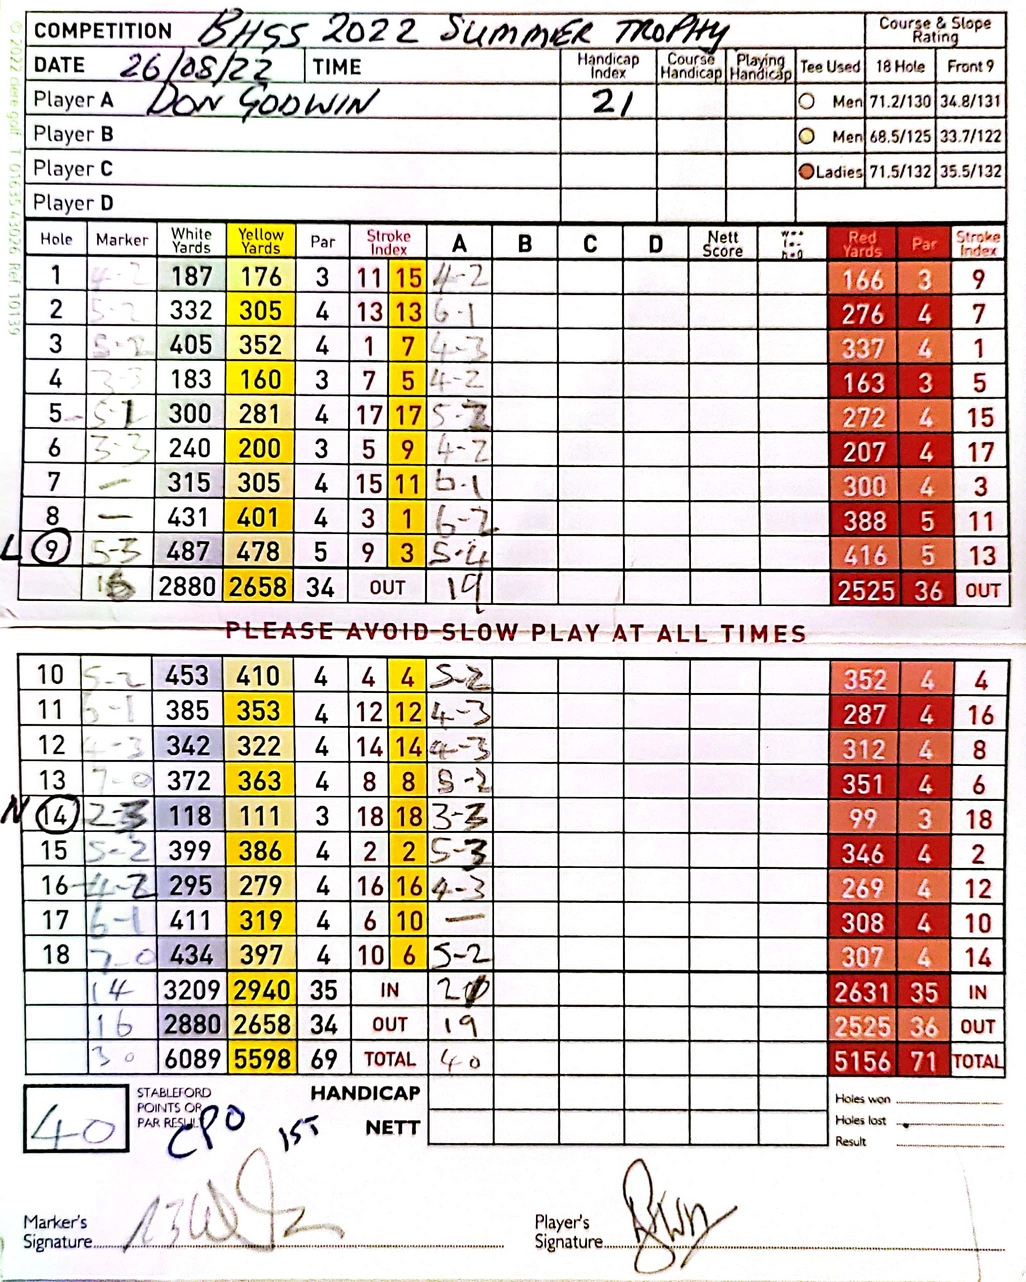 COMPETITION BHGS 2022 SUMMER TROPHY Course & Slope Rating
DATE 26/08/22 TIME Handicap Index Course Handicap Playing Handicap Tee Used 18 Hole Front 9
Player A DON GODWIN 21 Men 71.2/130 34.8/131
Player B Men 68.5/125 33.7/122
Player C Ladies 71.5/132 35.5/132
Player D
Hole Marker White Yards Yellow Yards Par Stroke Index A B C D Nett Score W=+ L=- H=0 Red Yards Par Stroke Index
1 4-2 187 176 3 11 15 4-2 166 3 9
2 5-2 332 305 4 13 13 6-1 276 4 7
3 5-2 405 352 4 1 7 4-3 337 4 1
4 3-3 183 160 3 7 5 4-2 163 3 5
5 5-1 300 281 4 17 17 5-2 272 4 15
6 3-3 240 200 3 5 9 4-2 207 4 17
7 — 315 305 4 15 11 6-1 300 4 3
8 — 431 401 4 3 1 6-2 388 5 11
L 9 5-3 487 478 5 9 3 5-4 416 5 13
16 2880 2658 34 OUT 19 2525 36 OUT
PLEASE AVOID SLOW PLAY AT ALL TIMES
10 5-2 453 410 4 4 4 5-2 352 4 4
11 6-1 385 353 4 12 12 4-3 287 4 16
12 4-3 342 322 4 14 14 4-3 312 4 8
13 7-0 372 363 4 8 8 5-2 351 4 6
N 14 2-3 118 111 3 18 18 3-3 99 3 18
15 5-2 399 386 4 2 2 5-3 346 4 2
16 4-2 295 279 4 16 16 4-3 269 4 12
17 6-1 411 319 4 6 10 — 308 4 10
18 7-0 434 397 4 10 6 5-2 307 4 14
14 3209 2940 35 IN 21 2631 35 IN
16 2880 2658 34 OUT 19 2525 36 OUT
30 6089 5598 69 TOTAL 40 5156 71 TOTAL
40 STABLEFORD POINTS OR PAR RESULT HANDICAP Holes won
CPO 1ST NETT Holes lost
Result
Marker's Signature Player's Signature